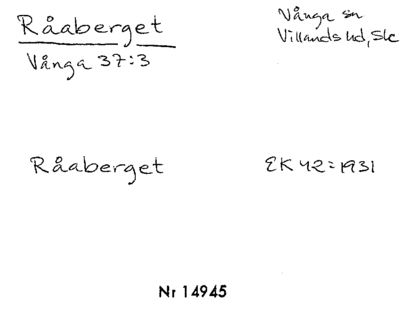 Råaberget
Vånga 37:3
Vånga sn
Villands hd, Skc
Råaberget
EK 42 = 1931
Nr 14945